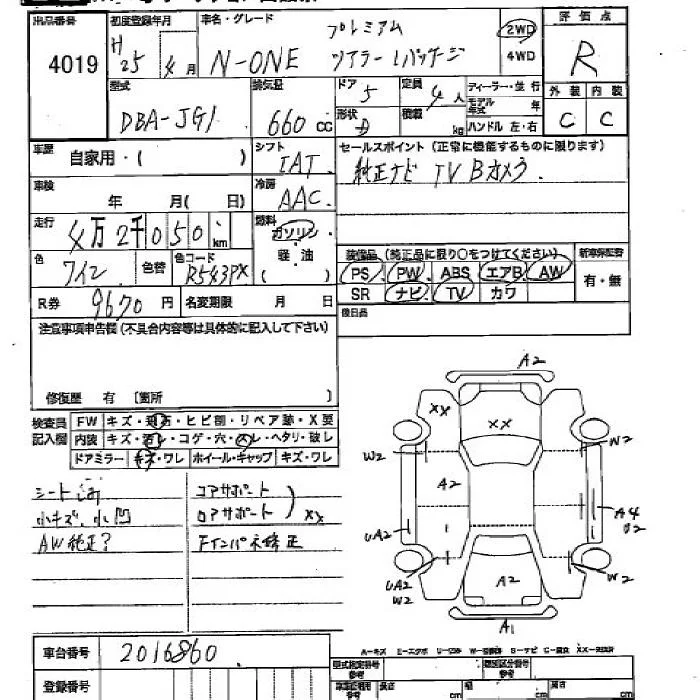 出品番号 初度登録年月 車名・グレード 評価点
4019 H25 4月 N-ONE プレミアム
ツアラー Lパッケージ 2WD
4WD R
外装 内装
C C
型式 排気量 ドア 定員 ディーラー・並行
DBA-JG1 660 cc 5 4人 モデル年式 年
形状 積載 kg ハンドル 左・右
車歴 シフト セールスポイント(正常に機能するものに限ります)
自家用・( ) IAT 純正ナビ TV Bカメラ
車検 冷房
年 月( 日) AAC
走行 燃料
4万2千050 km ガソリン
軽・油
( )
装備品(純正品に限り○をつけてください) 新車保証書
色 色替 色コード PS PW ABS エアB AW 有・無
ワイン R543PX SR ナビ TV カワ
R券 9670円 名変期限 月 日 後日品
注意事項申告欄(不具合内容等は具体的に記入して下さい)
修復歴 有 〔箇所 〕
検査員 FW キズ・飛石・ヒビ割・リペア跡・X要
記入欄 内装 キズ・汚レ・コゲ・穴・スレ・ヘタリ・破レ
ドアミラー キズ・ワレ ホイール・キャップ キズ・ワレ
コアサポート
小キズ、小凹 ロアサポート XX
AW純正?
A2
XX XX
W2 W2
A2
A4
UA2
UA2 W2
W2 A2
A1
車台番号 2016860
登録番号
型式指定番号 参考 類別区分番号 参考
長さ cm 幅 cm 高さ cm